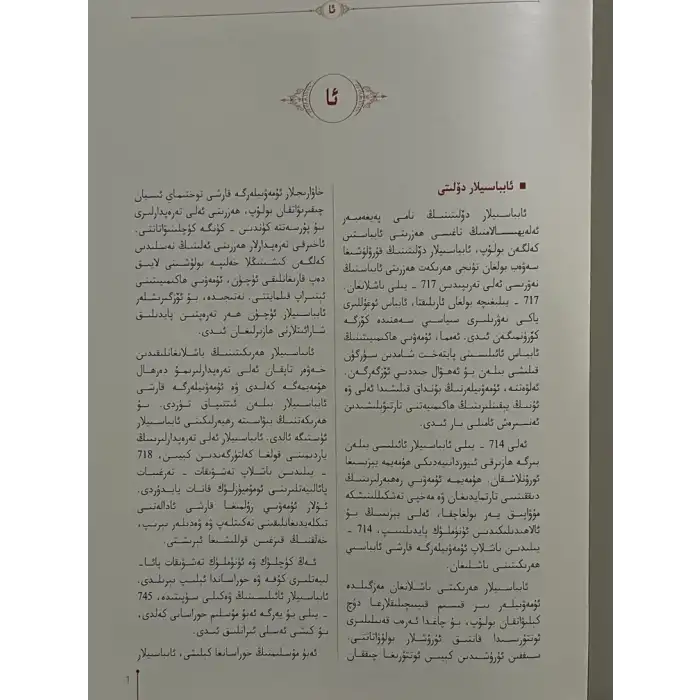 ئا
ئا
■ ئابباسىيلار دۆلىتى
ئابباسىيلار دۆلىتىنىڭ نامى پەيغەمبەر
ئەلەيھىسسالامنىڭ تاغىسى ھەزرىتى ئابباستىن
كەلگەن بولۇپ، ئابباسىيلار دۆلىتىنىڭ قۇرۇلۇشىغا
سەۋەب بولغان تۇنجى ھەرىكەت ھەزرىتى ئابباسنىڭ
نەۋرىسى ئەلى تەرىپىدىن 717 - يىلى باشلانغان.
717 - يىلىغىچە بولغان ئارىلىقتا، ئابباس ئوغۇللىرى
ياكى نەۋرىلىرى سىياسىي سەھنىدە كۆزگە
كۆرۈنمىگەن ئىدى. ئەمما، ئۇمەۋىي ھاكىمىيىتىنىڭ
ئابباس ئائىلىسىنى پايتەخت شامدىن سۈرگۈن
قىلىشى بىلەن بۇ ئەھۋال جىددىي ئۆزگەرگەن.
ئەلۋەتتە، ئۇمەۋىيلەرنىڭ بۇنداق قىلىشىدا ئەلى ۋە
ئۇنىڭ يېقىنلىرىنىڭ ھاكىمىيەتنى تارتىۋېلىشىدىن
ئەنسىرەش ئامىلى بار ئىدى.
ئەلى 714 - يىلى ئابباسىيلار ئائىلىسى بىلەن
بىرگە ھازىرقى ئىيوردانىيەدىكى ھۇمەيمە يېزىسىغا
ئورۇنلاشقان. ھۇمەيمە ئۇمەۋىي رەھبەرلىرىنىڭ
دىققىتىنى تارتمايدىغان ۋە مەخپىي تەشكىللىنىشكە
مۇۋاپىق يەر بولغاچقا، ئەلى يېرىنىڭ بۇ
ئالاھىدىلىكىدىن ئۈنۈملۈك پايدىلىنىپ، 714 -
يىلىدىن باشلاپ ئۇمەۋىيلەرگە قارشى ئابباسىي
ھەرىكىتىنى باشلىغان.
ئابباسىيلار ھەرىكىتى باشلانغان مەزگىلدە
ئۇمەۋىيلەر بىر قىسىم قىيىنچىلىقلارغا دۇچ
كېلىۋاتقان بولۇپ، بۇ چاغدا ئەرەب قەبىلىلىرى
ئوتتۇرىسىدا قاتتىق ئۇرۇشلار بولۇۋاتاتتى.
سىففىن ئۇرۇشىدىن كېيىن ئوتتۇرىغا چىققان
خاۋارىجلار ئۇمەۋىيلەرگە قارشى توختىماي ئىسيان
چىقىرىۋاتقان بولۇپ، ھەزرىتى ئەلى تەرەپدارلىرى
بۇ پۇرسەتتە كۈندىن - كۈنگە كۈچلىنىۋاتاتتى.
ئاخىرقى تەرەپدارلار ھەزرىتى ئەلىنىڭ نەسلىدىن
كەلگەن كىشىنىڭلا خەلىپە بولۇشىنى لايىق
دەپ قارىغانلىقى ئۈچۈن، ئۇمەۋىي ھاكىمىيىتىنى
ئېتىراپ قىلمايتتى. نەتىجىدە، بۇ ئۆزگىرىشلەر
ئابباسىيلار ئۈچۈن ھەر تەرەپتىن پايدىلىق
شارائىتلارنى ھازىرلىغان ئىدى.
ئابباسىيلار ھەرىكىتىنىڭ باشلانغانلىقىدىن
خەۋەر تاپقان ئەلى تەرەپدارلىرىمۇ دەرھال
ھۇمەيمەگە كەلدى ۋە ئۇمەۋىيلەرگە قارشى
ئابباسىيلار بىلەن ئىتتىپاق تۈزدى. بۇ
ھەرىكەتنىڭ بىۋاسىتە رەھبەرلىكىنى ئابباسىيلار
ئۈستىگە ئالدى. ئابباسىيلار ئەلى تەرەپدارلىرىنىڭ
ياردىمىنى قولغا كەلتۈرگەندىن كېيىن، 718
- يىلىدىن باشلاپ تەشۋىقات - تەرغىبات
پائالىيەتلىرىنى ئومۇميۈزلۈك قانات يايدۇردى.
ئۇلار ئۇمەۋىي زۇلمىغا قارشى ئادالەتنى
تىكلەيدىغانلىقىنى تەكىتلەپ ۋە ۋەدىلەر بېرىپ،
خەلقنىڭ قىزغىن قوللىشىغا ئېرىشتى.
ئەڭ كۈچلۈك ۋە ئۈنۈملۈك تەشۋىقات پائا-
لىيەتلىرى كۇفە ۋە خوراساندا ئېلىپ بېرىلدى.
ئابباسىيلار ئائىلىسىنىڭ ۋەكىلى سۈپىتىدە، 745
- يىلى بۇ يەرگە ئەبۇ مۇسلىم خوراسانى كەلدى،
بۇ كىشى ئەسلى ئىرانلىق ئىدى.
ئەبۇ مۇسلىمنىڭ خوراسانغا كېلىشى، ئابباسىيلار
1